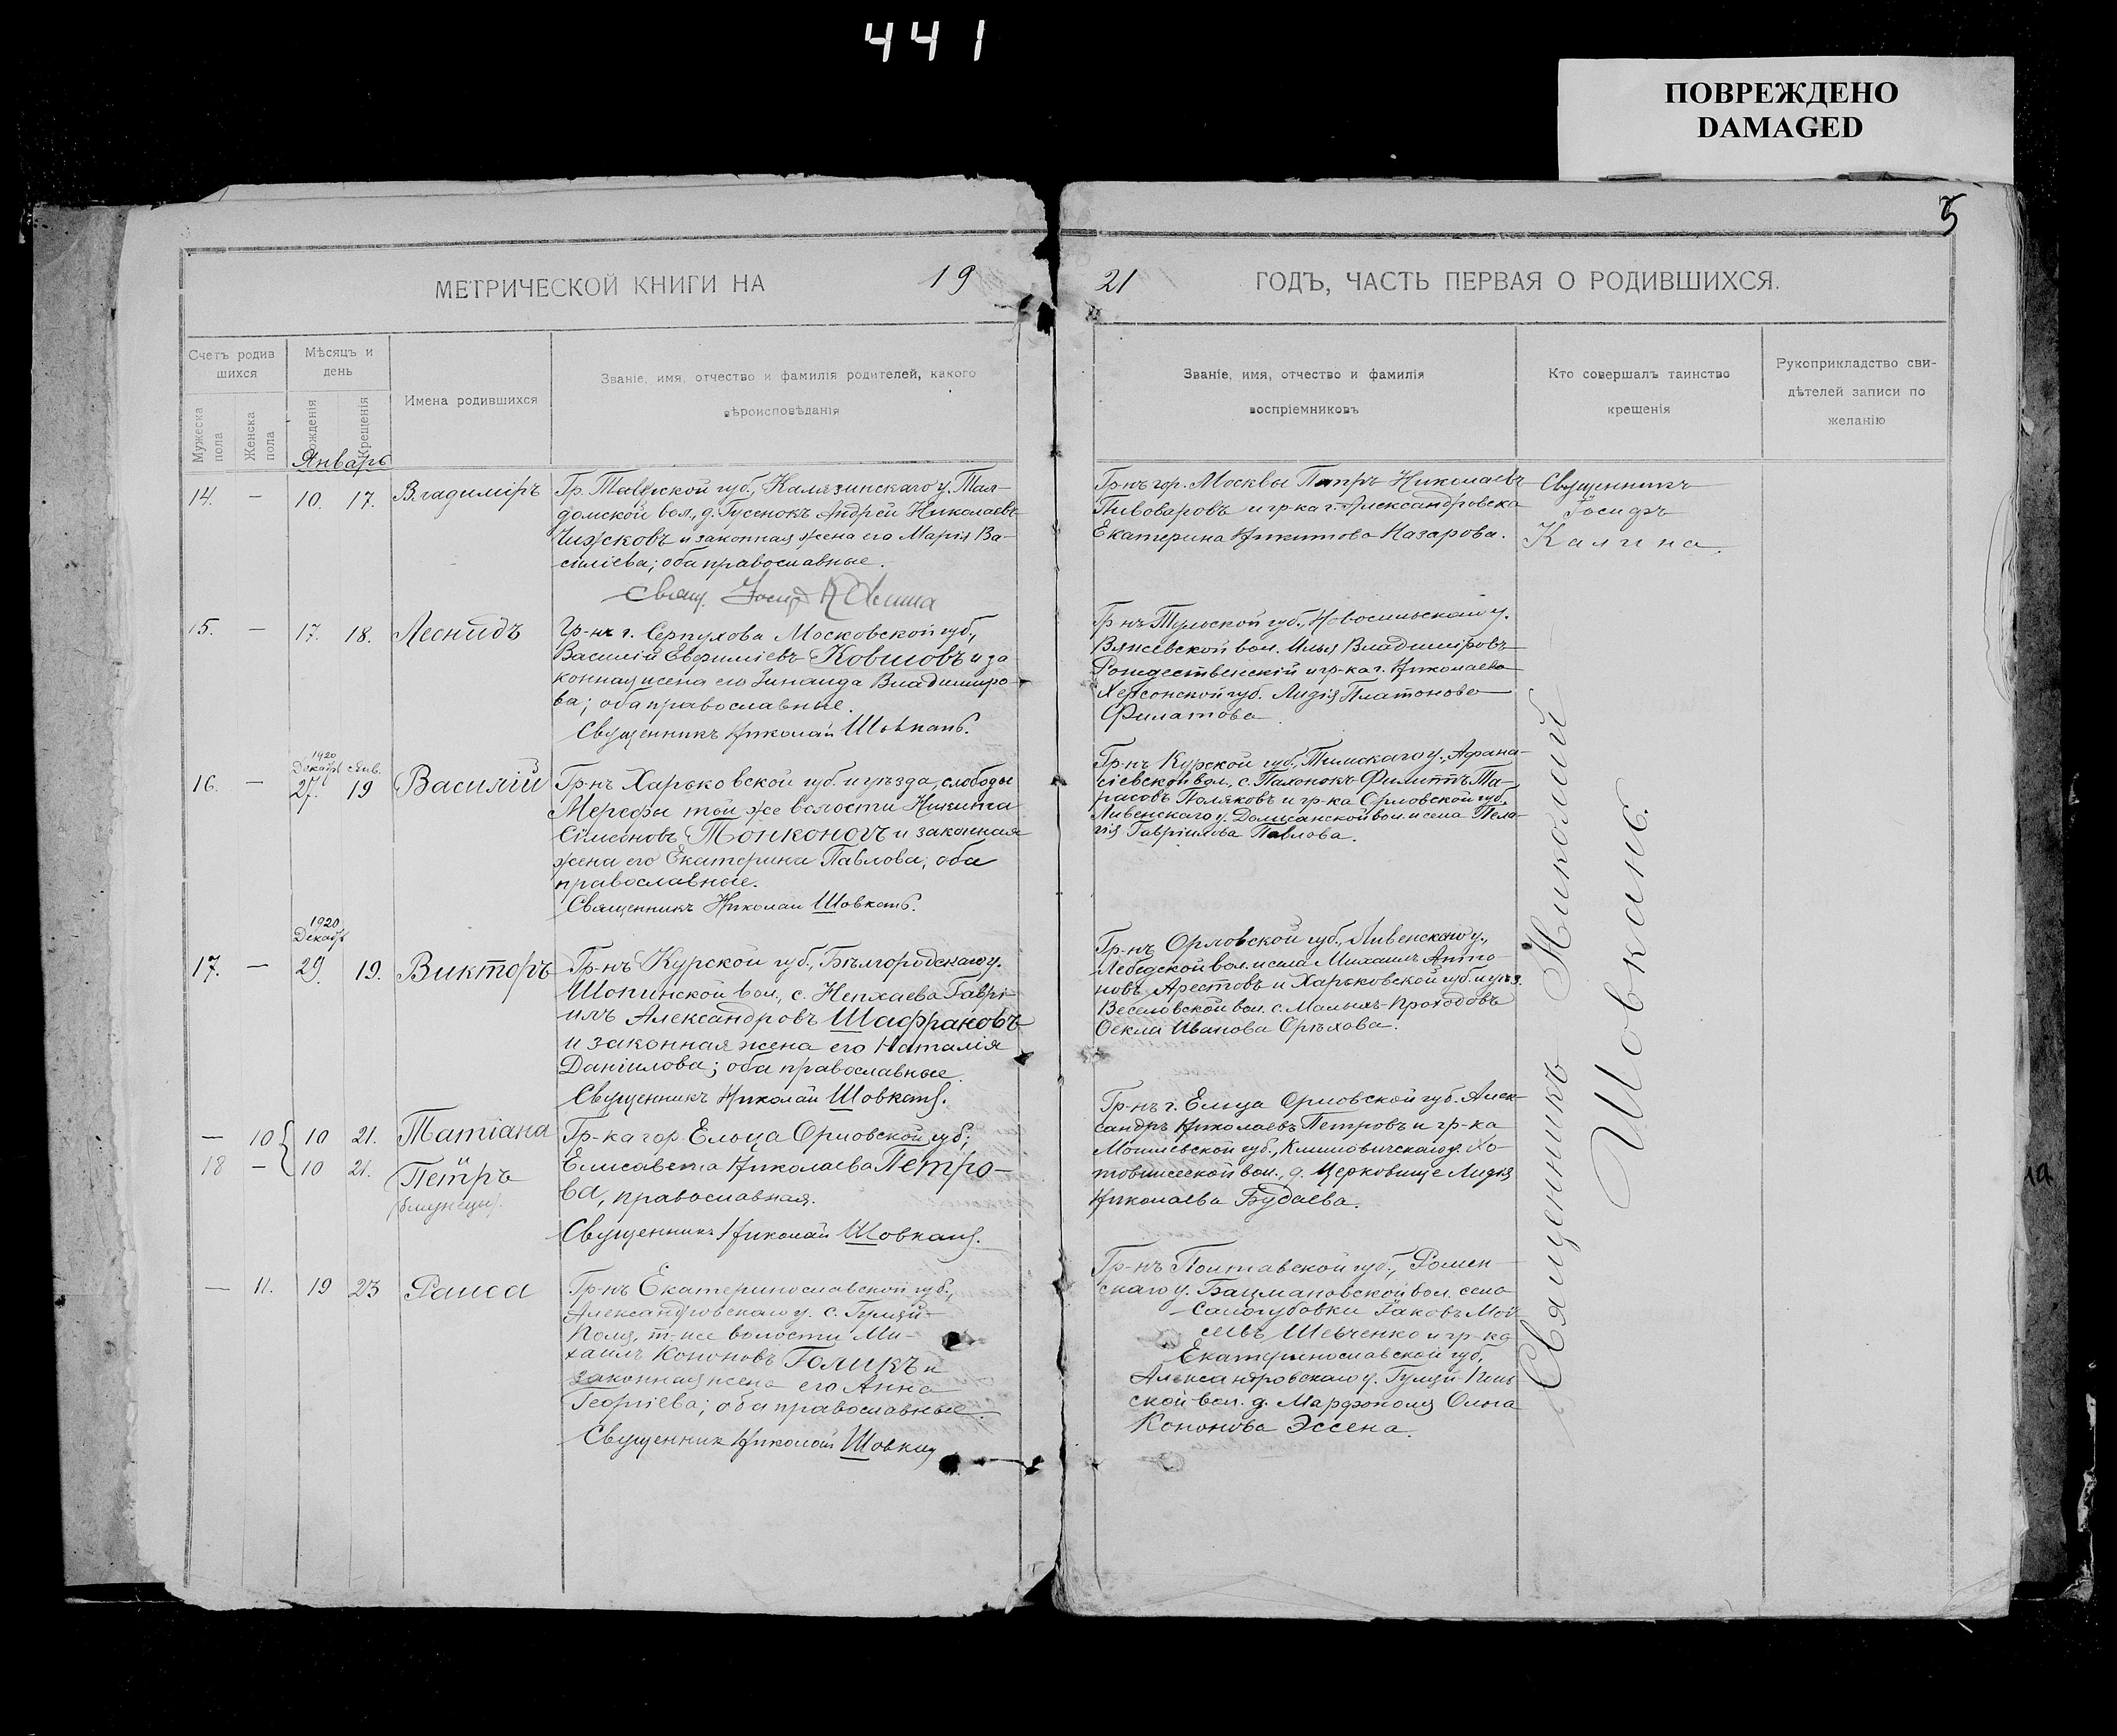 441
ПОВРЕЖДЕНО
DAMAGED
5
МЕТРИЧЕСКОЙ КНИГИ НА 19
21 ГОДЪ, ЧАСТЬ ПЕРВАЯ О РОДИВШИХСЯ.
Счетъ родив
шихся
Мужеска
пола
Женска
пола
Мѣсяцъ и
день
Рожденія
Крещенія
Имена родившихся
Званіе, имя, отчество и фамилія родителей, какого
вѣроисповѣданія
Званіе, имя, отчество и фамилія
воспріемниковъ
Кто совершалъ таинство
крещенія
Рукоприкладство сви-
дѣтелей записи по
желанію
Январь
14. — 10. 17. Владиміръ
Гр. Тверской губ., Калязинскаго у. Тал-
домской вол., д. Гусенокъ Андрей Николаевъ
Чижсковъ и законная жена его Марія Ва-
сильева; оба православные.
Свящ. Іосиф Калина
Гр-нъ гор. Москвы Петръ Николаевъ
Пивоваровъ и гр-ка г. Александровска
Екатерина Никитова Назарова.
Священникъ
Іосифъ
Калина.
15. — 17. 18. Леонидъ
Гр-нъ г. Серпухова Московской губ.,
Василій Евфиміевъ Ковшовъ и за
конная жена его Зинаида Владимиро-
ва; оба православные.
Священникъ Николай Шовкань.
Гр-нъ Тульской губ., Новосильскаго у.
Вяжевской вол. Илья Владиміровъ
Рождественскій и гр-ка г. Николаева
Херсонской губ. Лидія Платонова
Филатова.
1920
Декабр Янв.
16. — 27. 19 Василій
Гр-нъ Харьковской губ. и уѣзда, слободы
Мерефы той же волости Никита
Сімеоновъ Тонконогъ и законная
жена его Екатерина Павлова; оба
православные.
Священникъ Николай Шовкань.
Гр-нъ Курской губ., Тимскаго у. Афана-
сіевской вол., с. Пахонокъ Филиппъ Та-
расовъ Поляковъ и гр-ка Орловской губ.
Ливенскаго у. Должанской вол. и села Пела-
гія Гавріилова Павлова.
1920
Декабр
17. — 29. 19. Викторъ
Гр-нъ Курской губ., Бѣлгородскаго у.
Шопинской вол., с. Непхаева Гаврі-
илъ Александровъ Шафрановъ
и законная жена его Наталія
Даніилова; оба православные.
Священникъ Николай Шовкань.
Гр-нъ Орловской губ., Ливенскаго у.,
Лебедской вол. и села Михаилъ Анто
новъ Арестовъ и Харьковской губ. и уѣз.
Веселовской вол. с. Малыхъ-Проходовъ
Ѳекла Иванова Орѣхова.
— 10 10 21. Татіана
18 — 10 21. Петръ
(близнецы).
Гр-ка гор. Ельца Орловской губ.;
Елисавета Николаева Петро-
ва, православная.
Священникъ Николай Шовкань.
Гр-нъ г. Ельца Орловской губ. Алек-
сандръ Николаевъ Петровъ и гр-ка
Могилевской губ., Климовичскаго у. Хо-
товижской вол., д. Церковище Лидія
Николаева Будаева.
— 11. 19 23 Раиса
Гр-нъ Екатеринославской губ.,
Александровскаго у. с. Гуляй-
Поля, т-же волости Ми-
хаилъ Кононовъ Голикъ и
законная жена его Анна
Георгіева; оба православные.
Священник Николай Шовкан
Гр-нъ Полтавской губ., Ромен-
скаго у. Бацмановской вол. села
Салогубовки Іаковъ Мой
сеевъ Шевченко и гр-ка
Екатеринославской губ.
Александровскаго у. Гуляй-Поль
ской вол. д. Марфополя Ольга
Кононова Эссена.
Священникъ Николай
Шовкань.